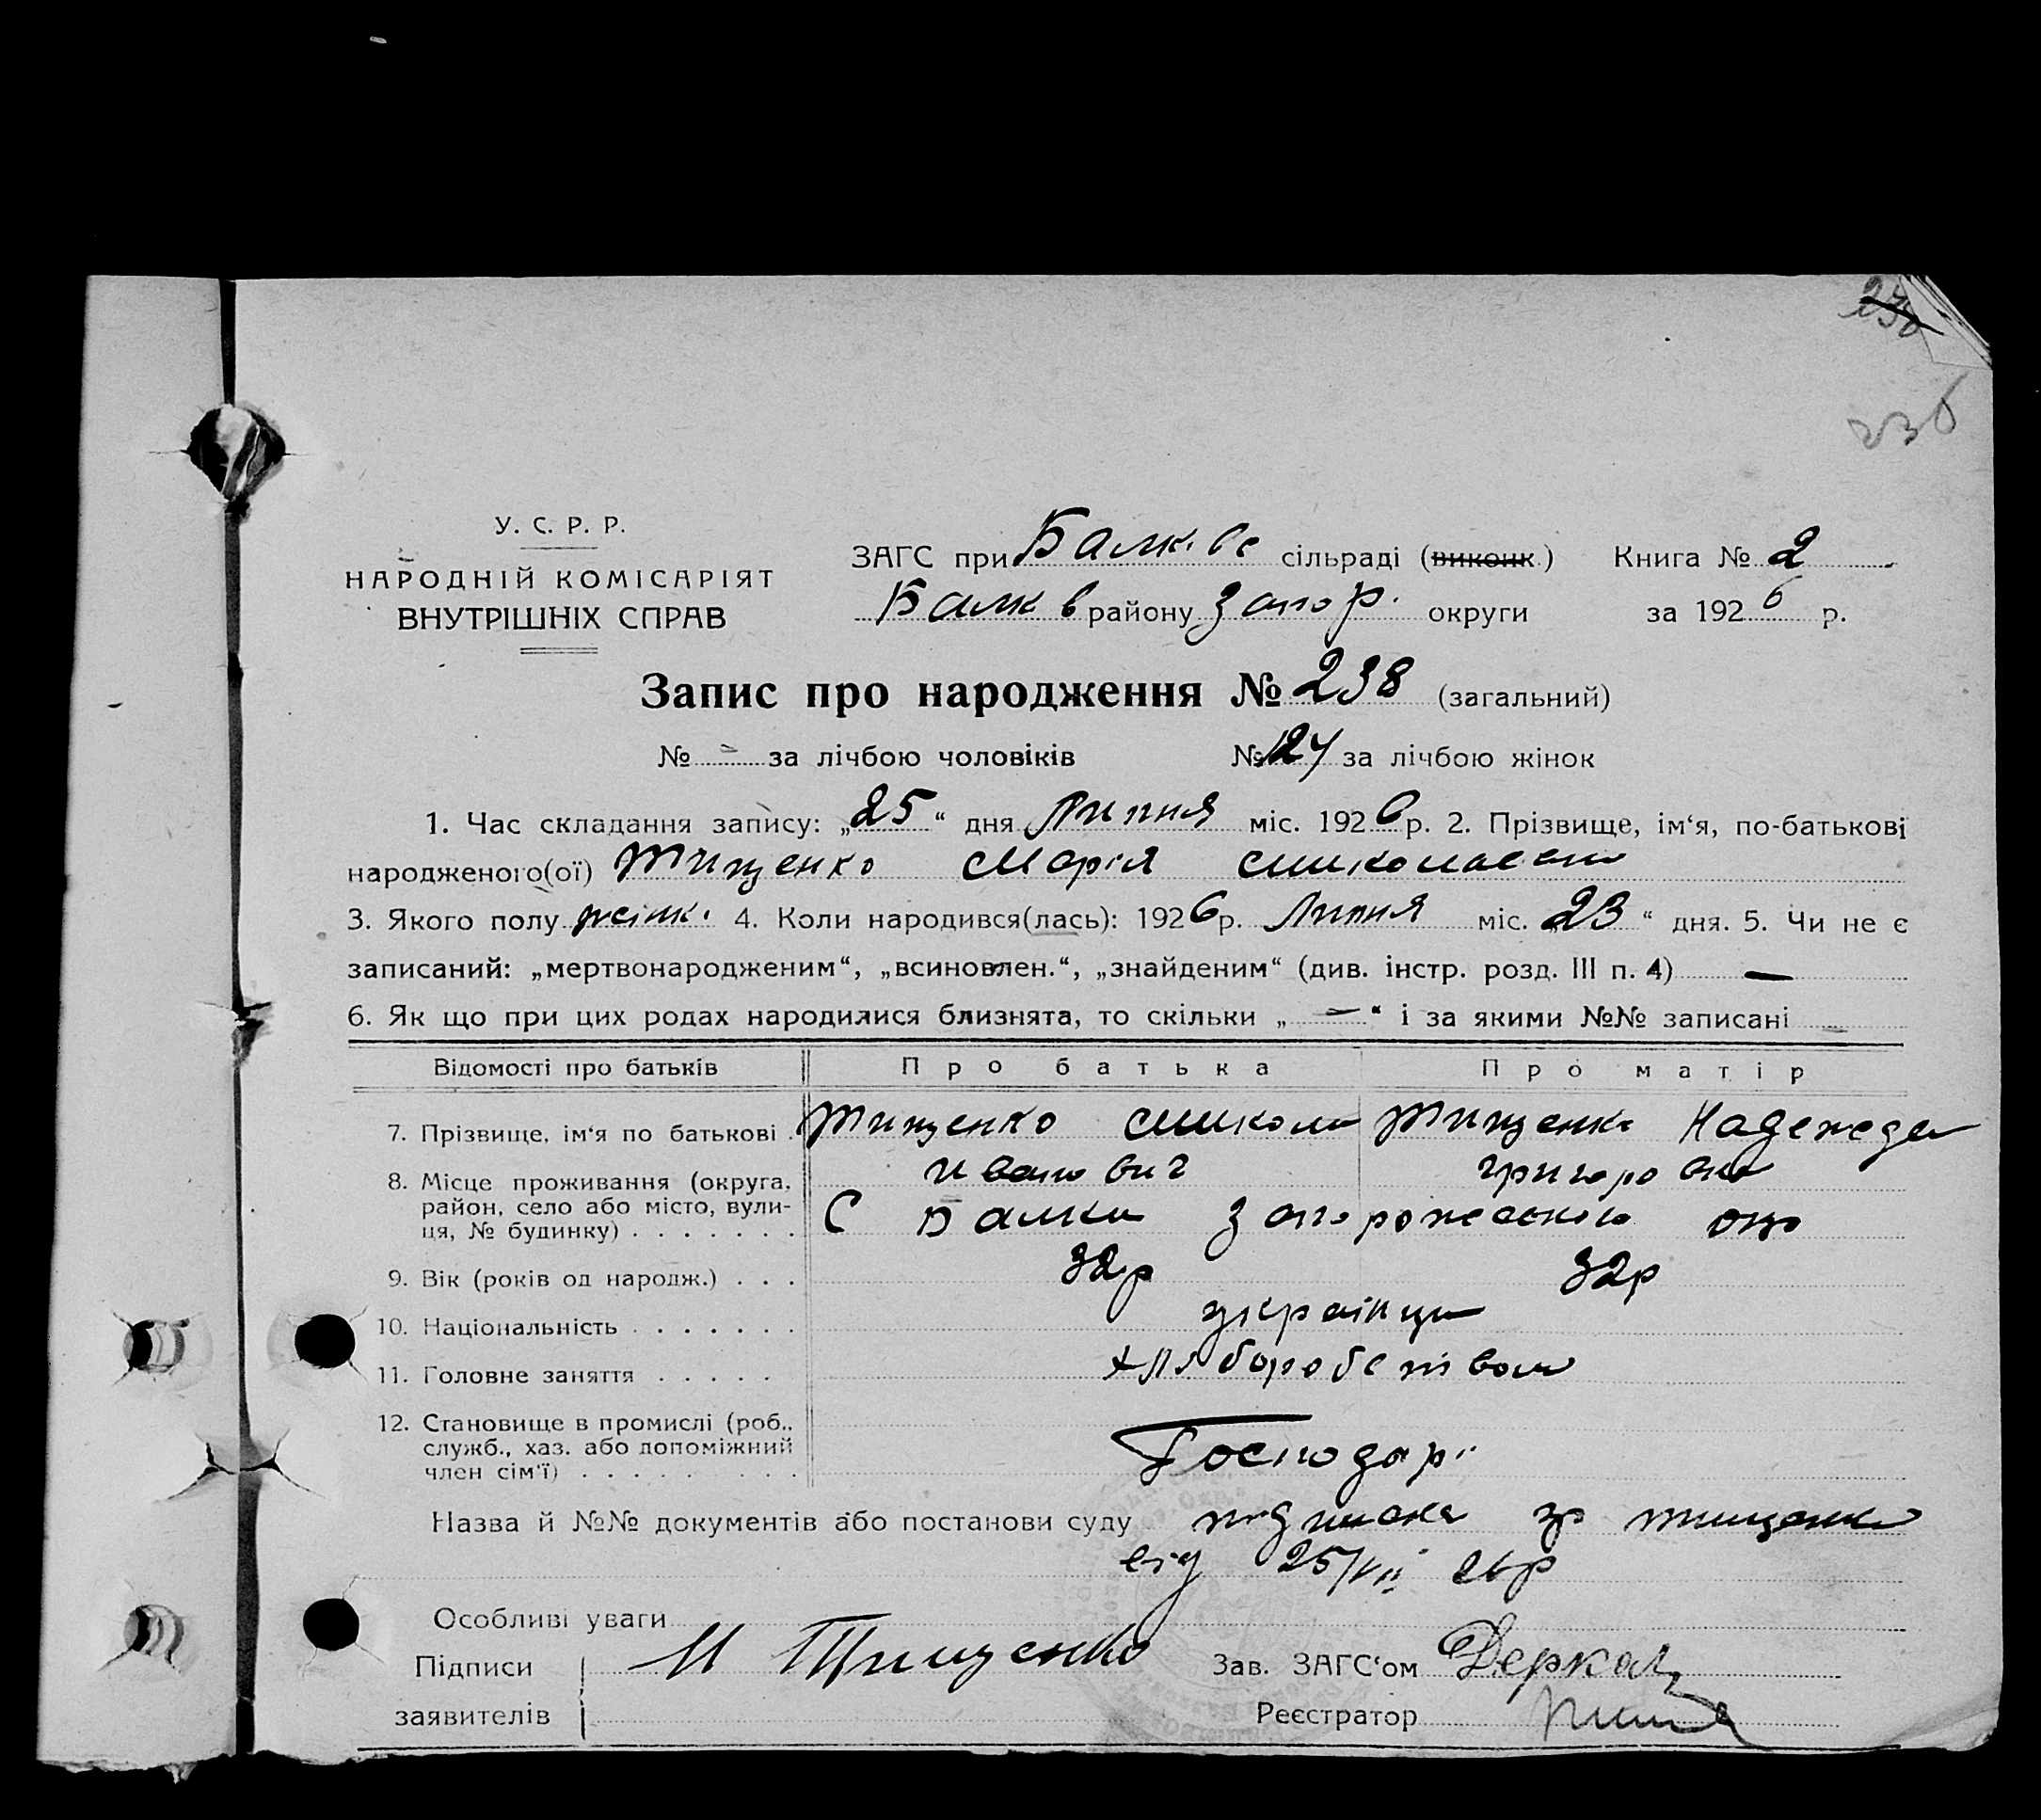 236
У. С. Р. Р.
НАРОДНІЙ КОМІСАРІЯТ
ВНУТРІШНІХ СПРАВ
ЗАГС при Балків сільраді (виконк.) Книга № 2
Балк в району Запор. округи за 1926 р.
Запис про народження № 238 (загальний)
№ - за лічбою чоловіків № 124 за лічбою жінок
1. Час складання запису: „25“ дня Липня міс. 1926 р. 2. Прізвище, ім‘я, по-батькові
народженого(ої) Тищенко Марія Миколаевн
3. Якого полу жінк. 4. Коли народився(лась): 1926 р. Липня міс. „23“ дня. 5. Чи не є
записаний: „мертвонародженим“, „всиновлен.“, „знайденим“ (див. інстр. розд. III п. 4) —
6. Як що при цих родах народилися близнята, то скільки „ — “ і за якими №№ записані —
Відомості про батьків Про батька Про матір
7. Прізвище, ім‘я по батькові . Тищенко Микола Тищенко Надежда
Иванович Григоровна
8. Місце проживання (округа,
район, село або місто, вули-
ця, № будинку) . . . . . . . С Балки Запорожського окр
9. Вік (років од народж.) . . . 32р 32р
10. Національність . . . . . . . українци
11. Головне заняття . . . . . хліборобством
12. Становище в промислі (роб.,
служб., хаз. або допоміжний
член сім‘ї) . . . . . . . . . Господарі
Назва й №№ документів або постанови суду підписка гр Тищенко
від 25/VII 26р
Особливі уваги
Підписи
заявителів
М Тищенко
Зав. ЗАГС‘ом Деркач
Реєстратор